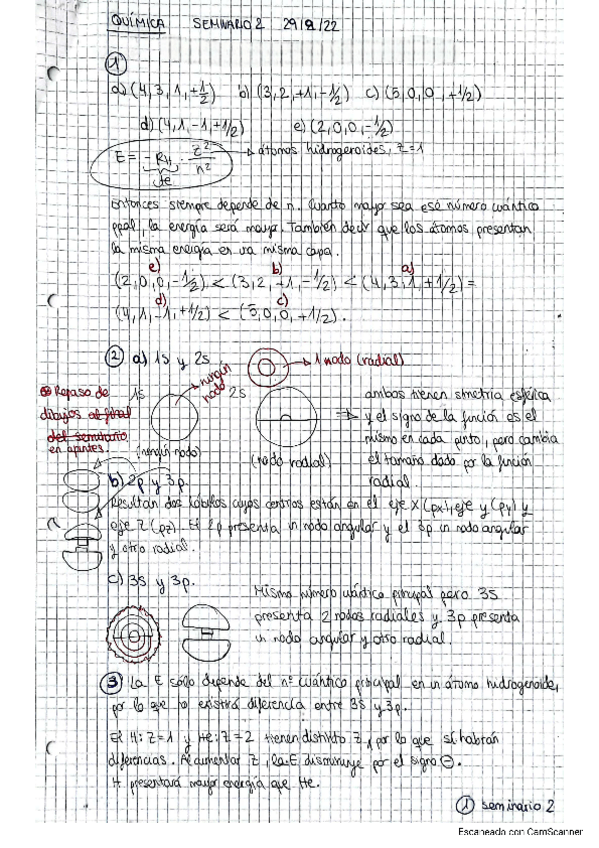 QUÍMICA SEMINARIO 2 29/9/22
①
a) (4,3,1,+1/2) b) (3,2,+1,-1/2) c) (5,0,0,+1/2)
d) (4,1,-1,+1/2) e) (2,0,0,-1/2)
E = -RH · Z²/n² → átomos hidrogenoides, Z=1
cte
Entonces siempre depende de n. Cuanto mayor sea ese número cuántico
ppal, la energía será mayor. También decir que los átomos presentan
la misma energía en una misma capa.
e) b) a)
(2,0,0,-1/2) < (3,2,+1,-1/2) < (4,3,1,+1/2) =
d) c)
(4,1,-1,+1/2) < (5,0,0,+1/2).
② a) 1s y 2s → 1 nodo (radial)
Repaso de
dibujos al final
del seminario
en apuntes.
1s ningún nodo
(ningún nodo)
2s
(nodo radial)
ambos tienen simetría esférica
y el signo de la función es el
mismo en cada punto, pero cambia
el tamaño dado por la función
radial
b) 2p y 3p.
Resultan dos lóbulos cuyos centros están en el eje x (px), eje y (py) y
eje z (pz). El 2p presenta un nodo angular y el 3p un nodo angular
y otro radial.
c) 3s y 3p.
Mismo número cuántico principal pero 3s
presenta 2 nodos radiales y 3p presenta
un nodo angular y otro radial.
③ La E sólo depende del nº cuántico principal en un átomo hidrogenoide,
por lo que no existirá diferencia entre 3s y 3p.
El H: Z=1 y He: Z=2 tienen distinto Z, por lo que sí habrán
diferencias. Al aumentar Z, la E disminuye por el signo ⊖.
H presentará mayor energía que He.
① seminario 2
Escaneado con CamScanner